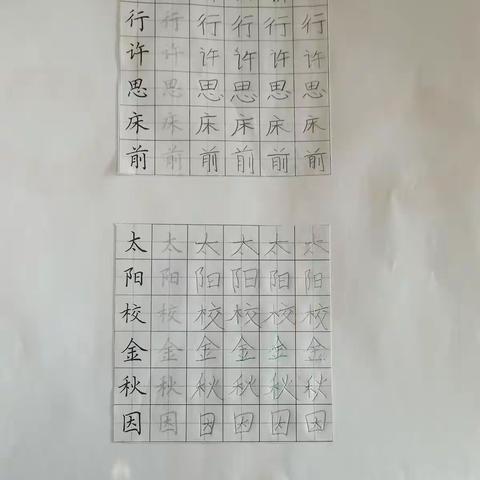 行行行行行行
许许许许许许
思思思思思思
床床床床床床
前前前前前前
太太太太太太
阳阳阳阳阳阳
校校校校校校
金金金金金金
秋秋秋秋秋秋
因因因因因因